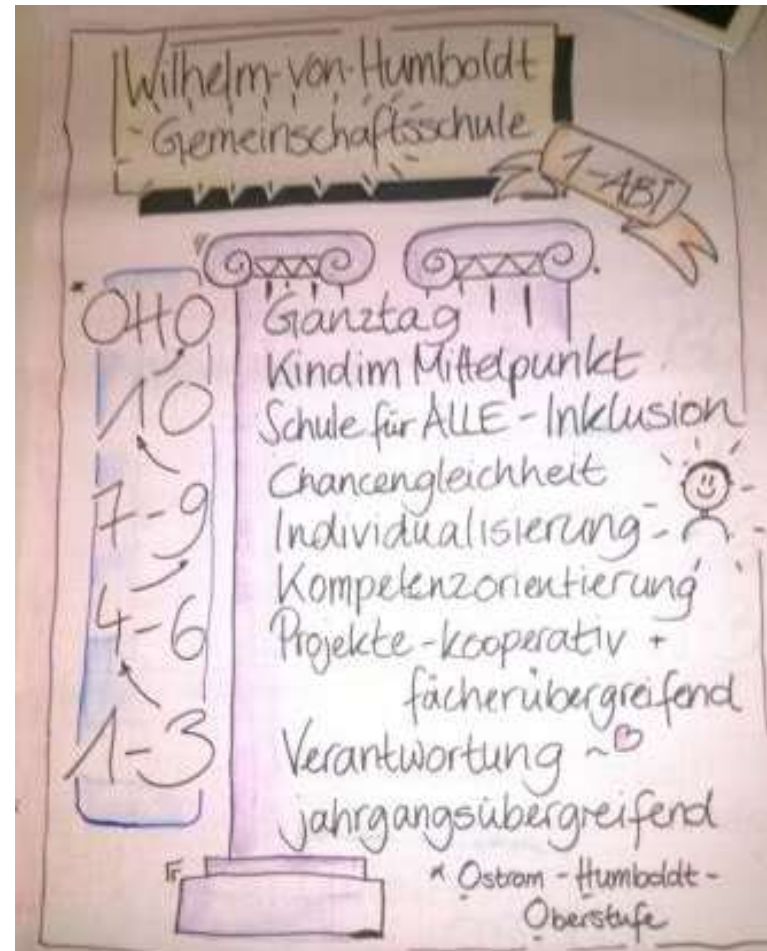 Wilhelm-von-Humboldt
Gemeinschaftsschule
1-ABI
*OHO
10
7-9
4-6
1-3
Ganztag
Kind im Mittelpunkt
Schule für ALLE - Inklusion
Chancengleichheit
Individualisierung
Kompetenzorientierung
Projekte - kooperativ +
fächerübergreifend
Verantwortung ~
jahrgangsübergreifend
* Ostrom - Humboldt -
Oberstufe